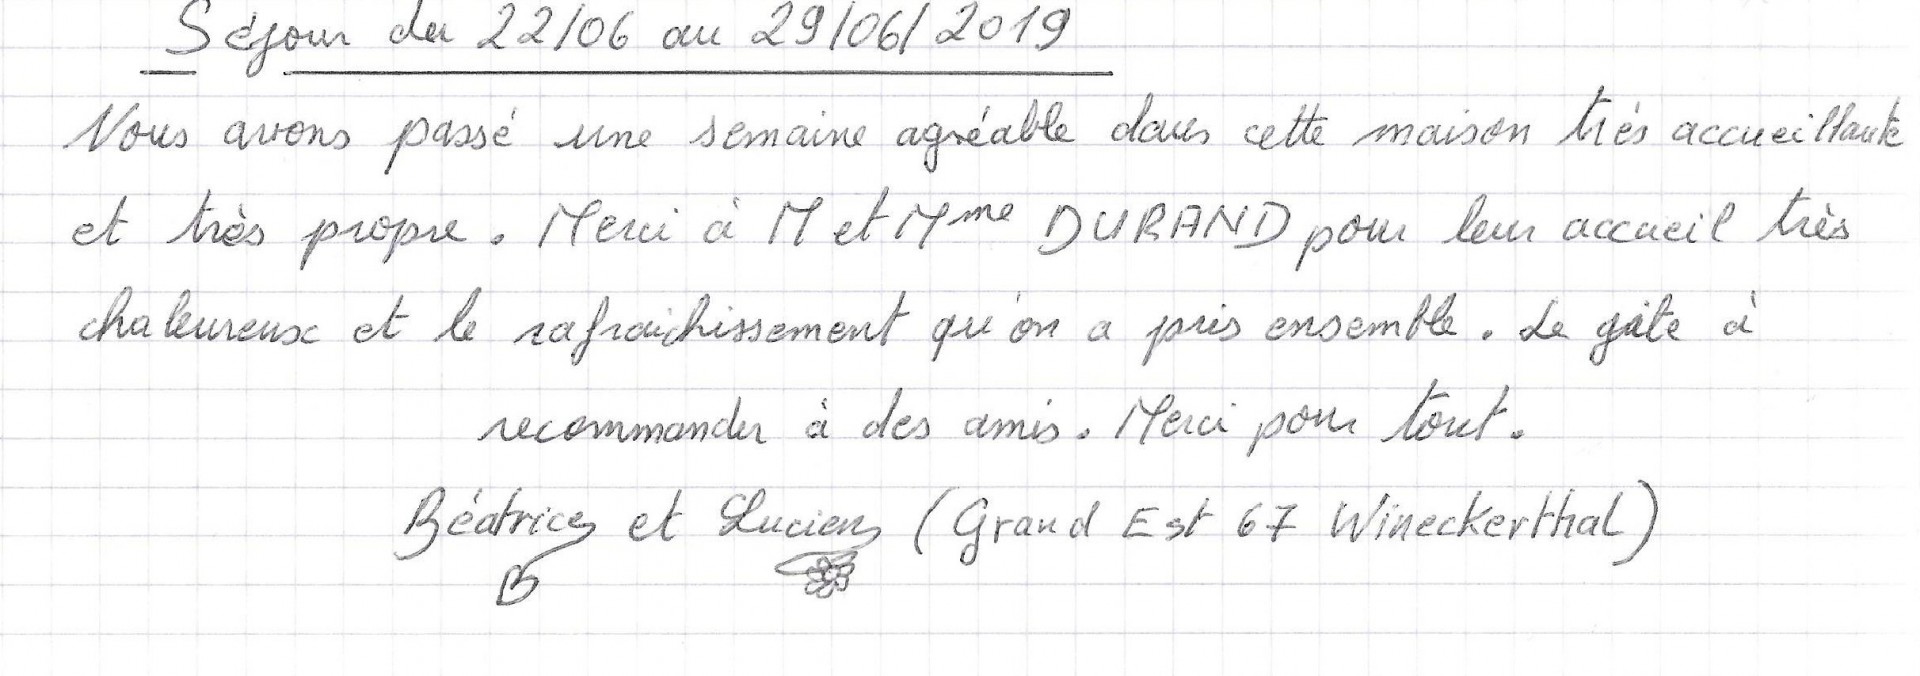 Séjour du 22/06 au 29/06/2019
Nous avons passé une semaine agréable dans cette maison très accueillante
et très propre. Merci à M et Mme DURAND pour leur accueil très
chaleureux et le rafraichissement qu'on a pris ensemble. Le gîte à
recommander à des amis. Merci pour tout.
Béatrice et Lucien (Grand Est 67 Wineckerthal)
B